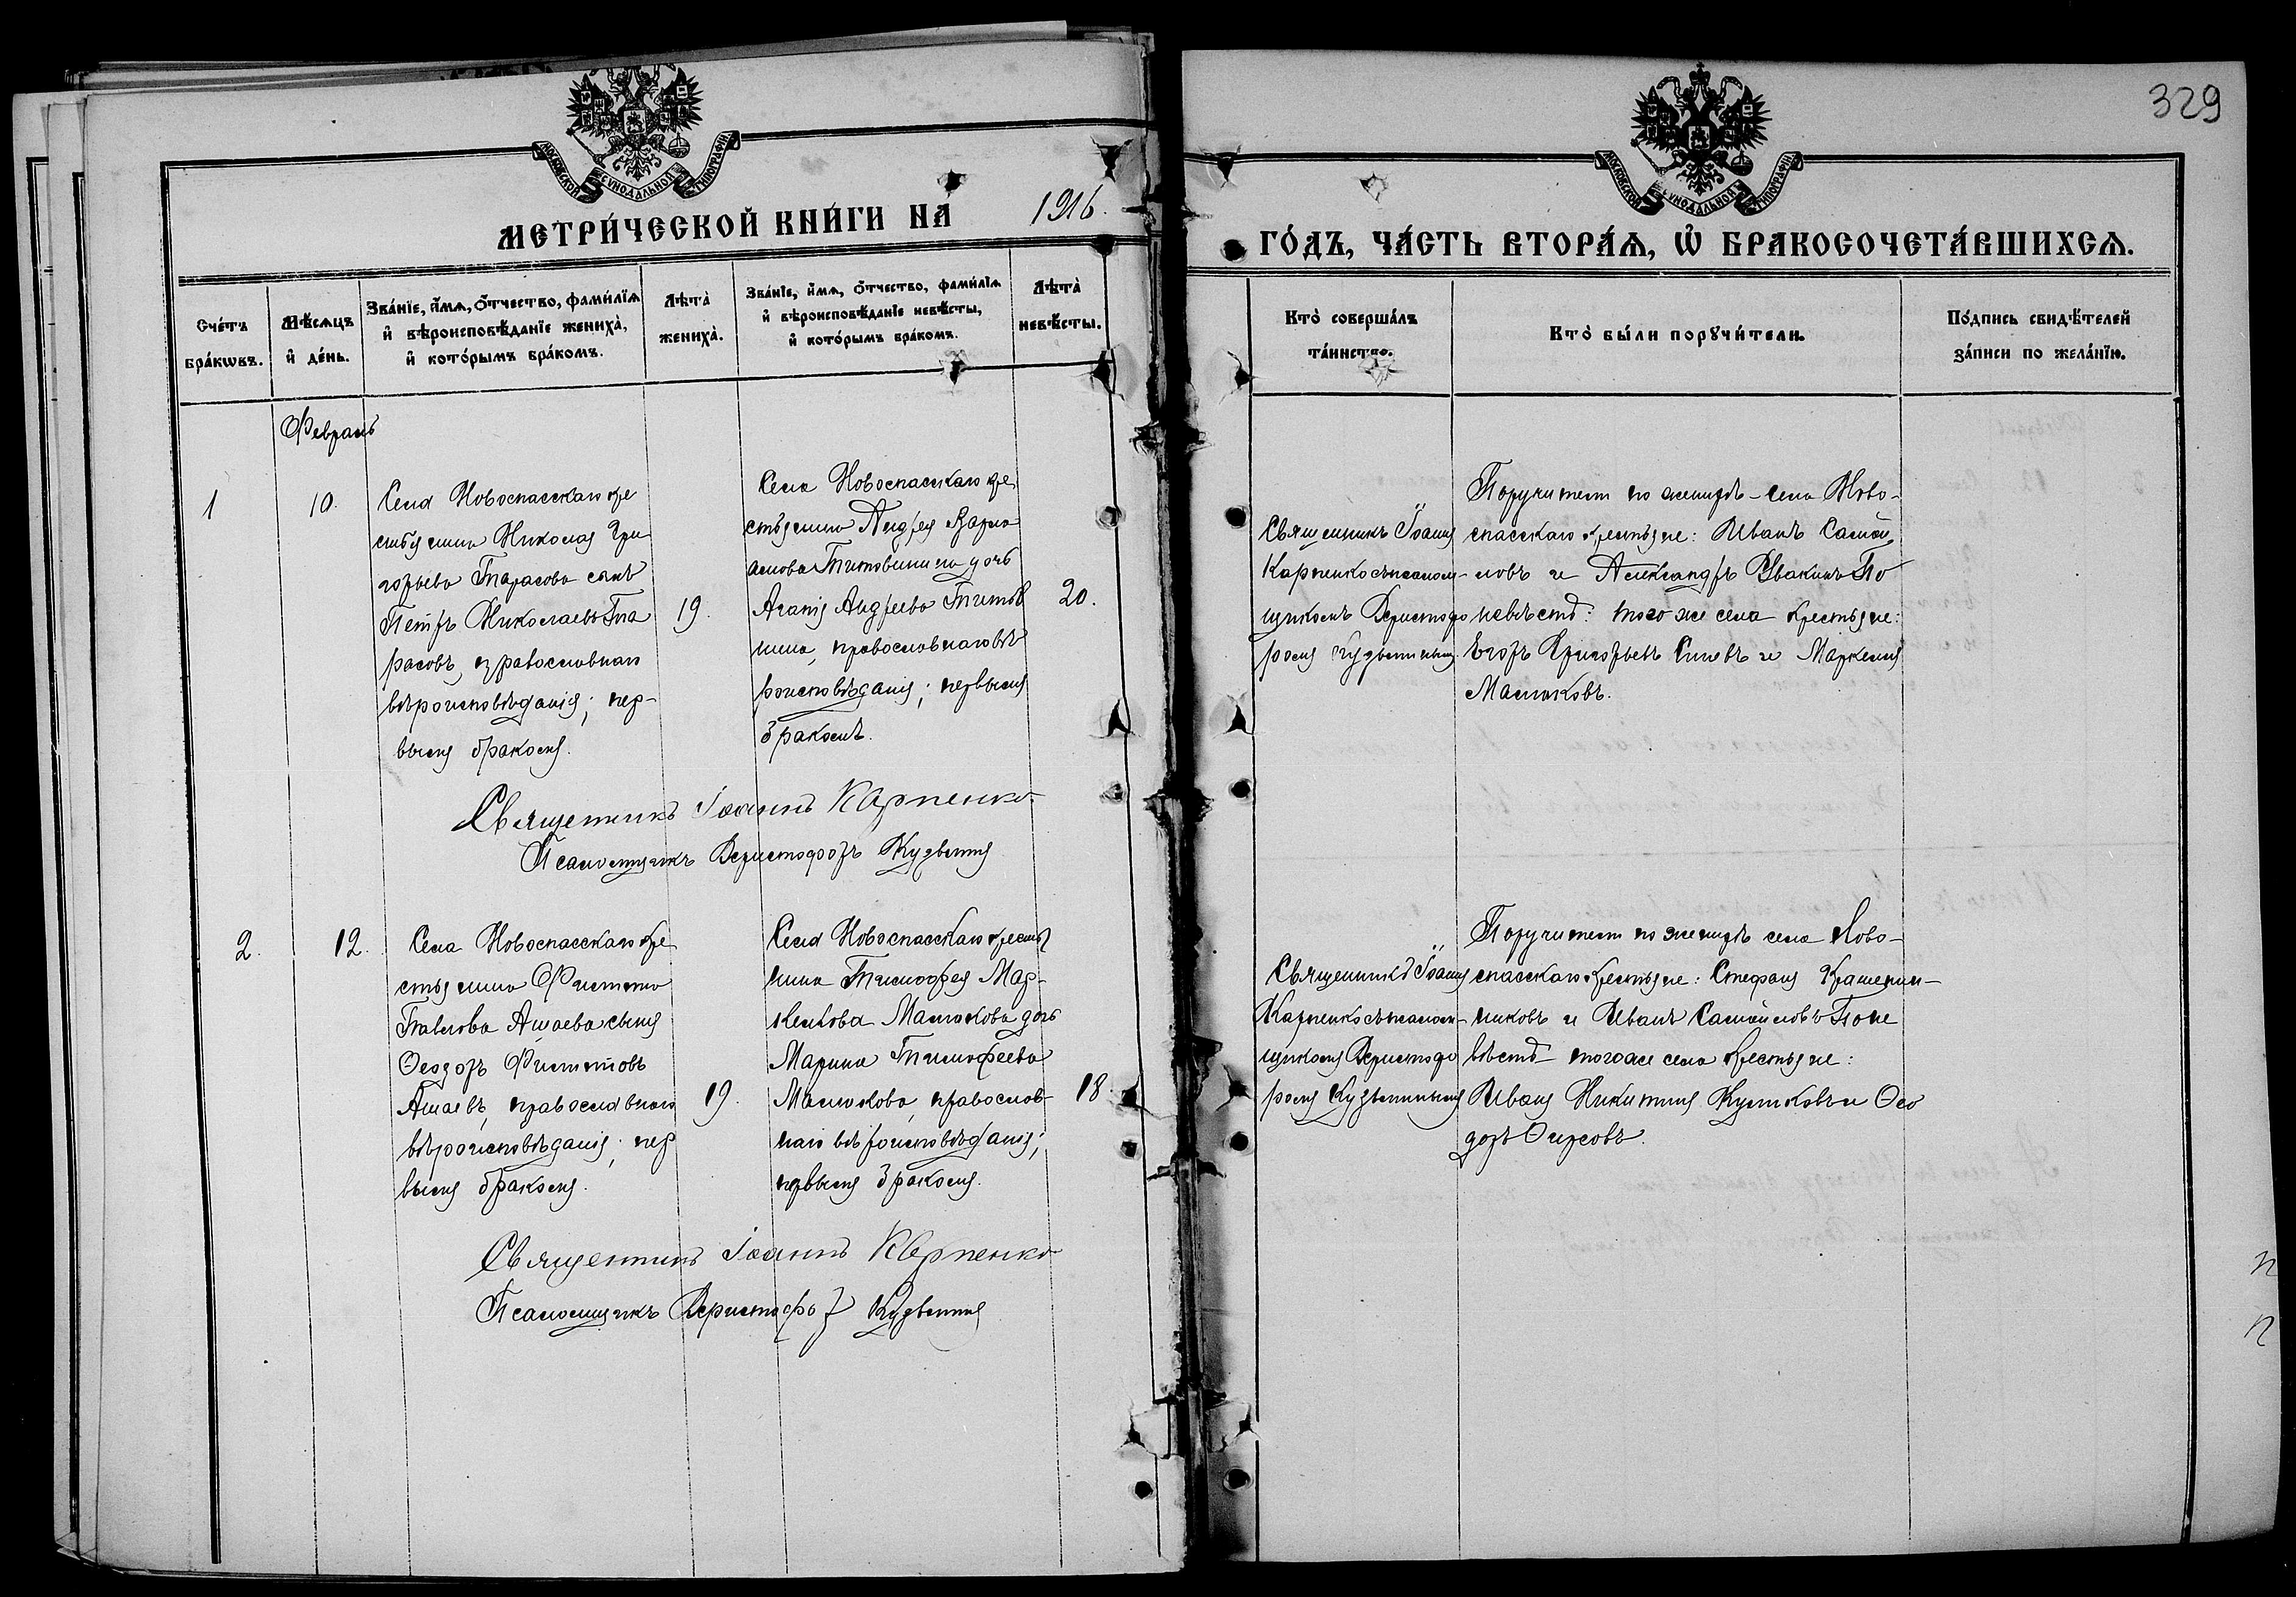 329
МОСКОВСКОЙ СѴНОДАЛЬНОЙ ТИПОГРАФІИ
МОСКОВСКОЙ СѴНОДАЛЬНОЙ ТИПОГРАФІИ
МЕТРИ́ЧЕСКОЙ КНИ́ГИ НА 1916.
ГО́ДЪ, ЧА́СТЬ ВТОРА́Ѧ, Ѽ БРАКОСОЧЕТА́ВШИХСѦ.
Сче́тъ бра́кѡвъ.
Мѣ́сѧцъ и҆ де́нь.
Зва́нїе, и҆́мѧ, ѻ҆́тчество, фами́лїѧ и҆ вѣроисповѣ́данїе жениха̀, и҆ кото́рымъ бра́комъ.
Лѣта̀ жениха̀.
Зва́нїе, и҆́мѧ, ѻ҆́тчество, фами́лїѧ и҆ вѣроисповѣ́данїе невѣ́сты, и҆ кото́рымъ бра́комъ.
Лѣта̀ невѣ́сты.
Кто̀ соверша́лъ та́инство.
Кто̀ бы́ли порꙋчи́тели.
По́дпись свидѣ́телей за́писи по жела́нїю.
Февраль
1
10.
Села Новоспасскаго кре
стьянина Николая Гри
горьева Тарасова сынъ
Петръ Николаевъ Та
расовъ, православнаго
вѣроисповѣданія; пер-
вымъ бракомъ.
19.
Села Новоспасскаго кре
стьянина Андрея
Титовинина дочь
Агапія Андреева Титов
нина, православнаго вѣ
роисповѣданія; первымъ
бракомъ.
20.
Священникъ Іоаннъ
Карпенко съ псалом-
щикомъ Христофо
ромъ
Поручители по женихѣ - села Ново-
спасскаго крестьяне: Иванъ Самой-
ловъ и Александръ Увакинъ По
невѣстѣ: того же села крестьяне:
Егоръ Григорьевъ и Маркелъ
Малюковъ.
Священникъ Іоаннъ Карпенко
Псаломщикъ Христофоръ
2.
12.
Села Новоспасскаго кре
стьянина
Павлова Ашаева сынъ
Ѳеодоръ
Ашаевъ, православнаго
вѣроисповѣданія; пер
вымъ бракомъ.
19.
Села Новоспасскаго кресть
нина Тимофея Мар-
келова Малюкова дочь
Марина Тимофеева
Малюкова, православ-
наго вѣроисповѣданія;
первымъ бракомъ.
18.
Священникъ Іоаннъ
Карпенко съ псалом-
щикомъ Христофо
ромъ
Поручители по женихѣ села Ново-
спасскаго крестьяне: Стефанъ Крашенин-
никовъ и Иванъ Самойловъ По не
вѣстѣ - того же села крестьяне:
Иванъ Никитинъ и Ѳео
доръ Ѳирсовъ.
Священникъ Іоаннъ Карпенко
Псаломщикъ Христофор